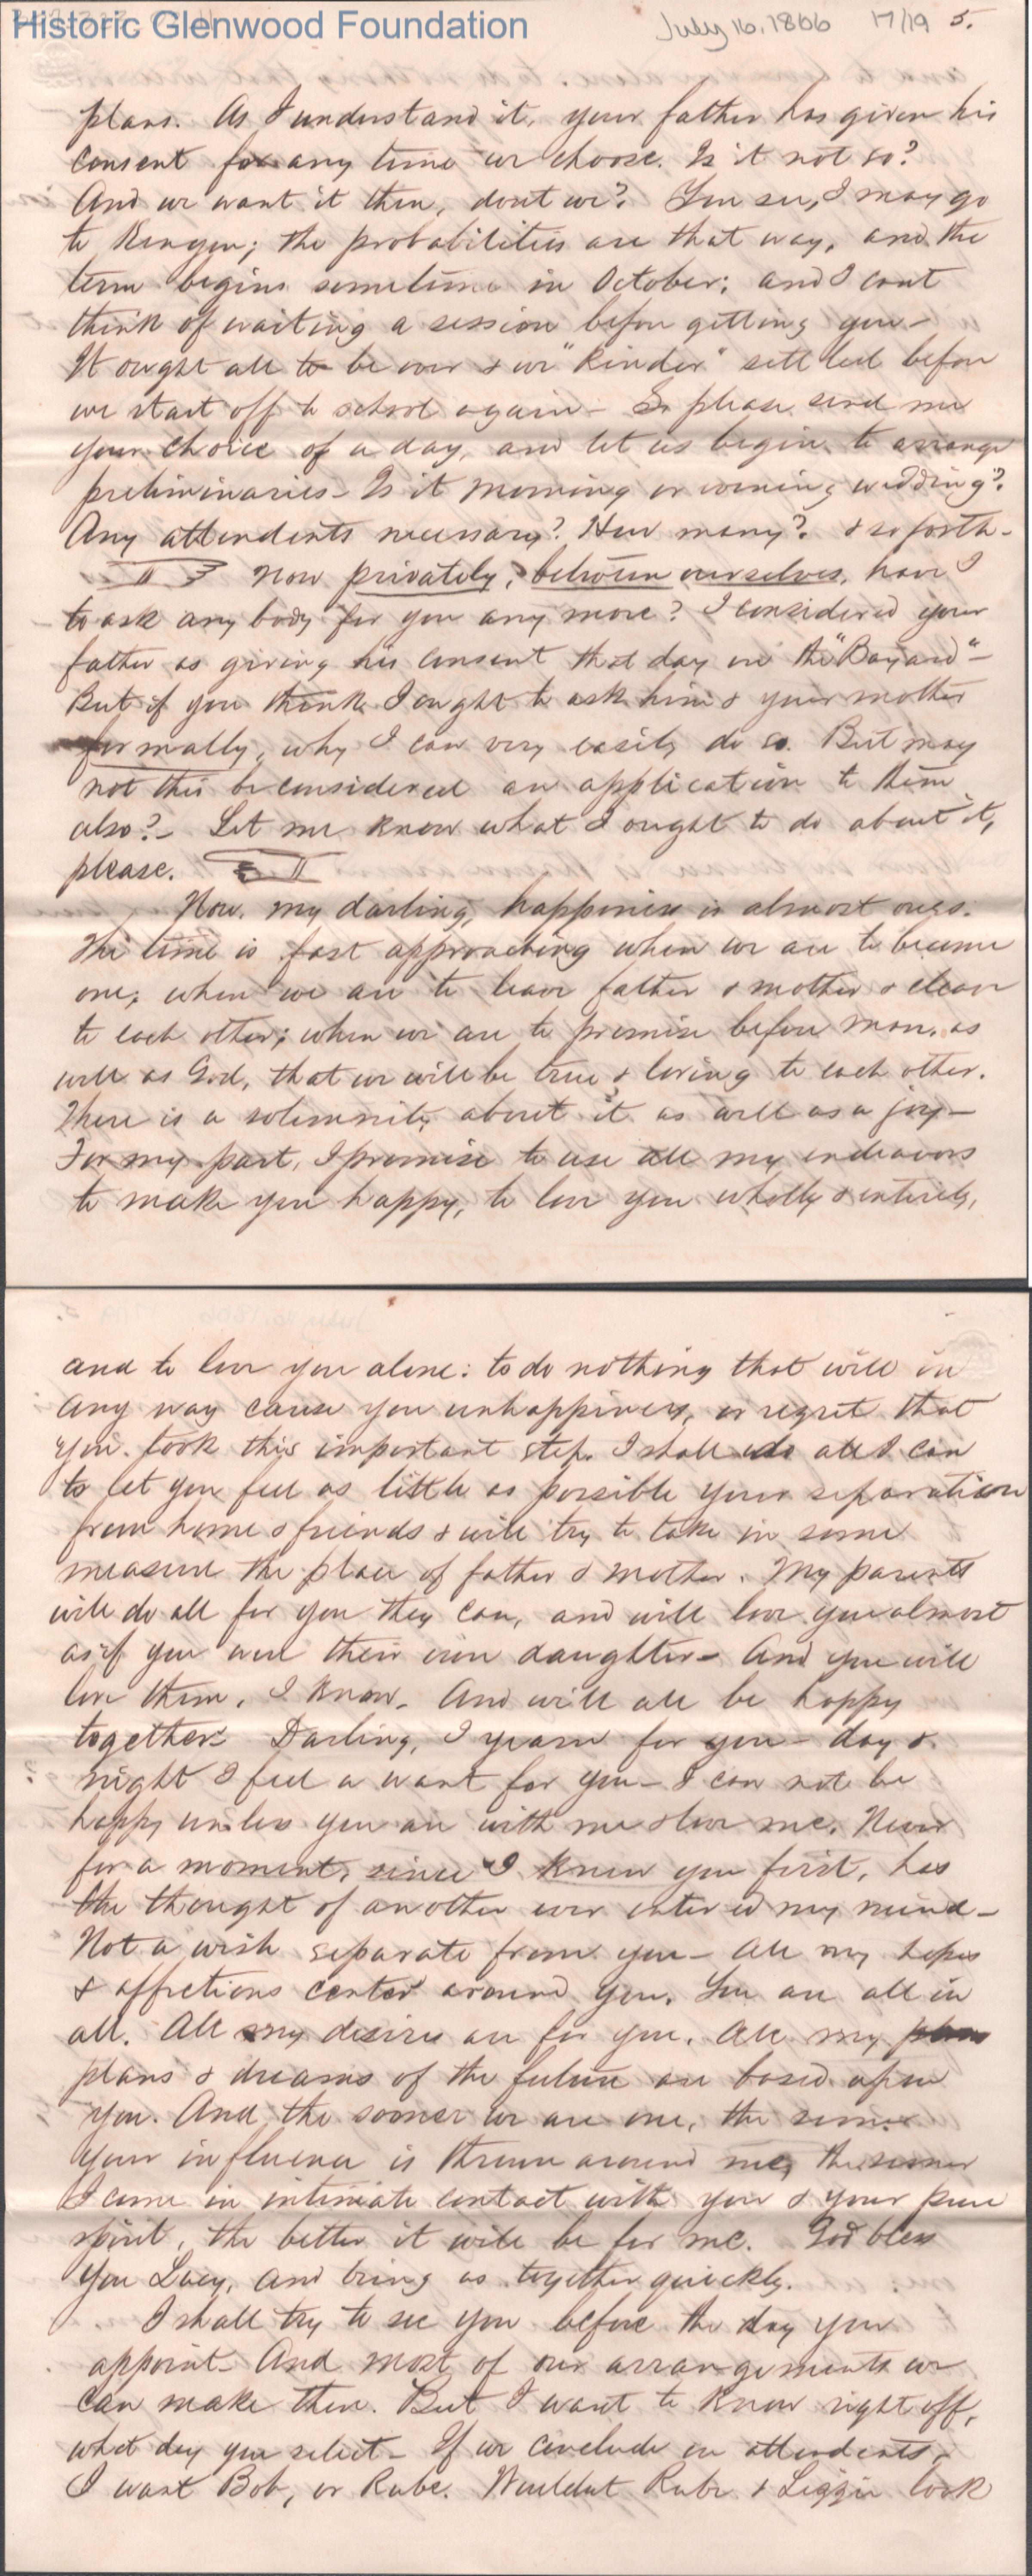 Historic Glenwood Foundation
July 16, 1866 17/19 5.
plans. As I understand it, your father has given his
consent for any time we choose. Is it not so?
And we want it then, dont we? You see, I may go
to Kenyon; the probabilities are that way, and the
term begins sometime in October; and I cant
think of waiting a session before getting you—
It ought all to be over & we "kinder" settled before
we start off to school again— So please send me
your choice of a day, and let us begin to arrange
preliminaries— Is it morning or evening wedding?
Any attendents necessary? How many? & so forth—
Now privately, between ourselves, have I
to ask any body for you any more? I considered your
father as giving his consent that day on the "Bayard"—
But if you think I ought to ask him & your mother
formally, why I can very easily do so. But may
not this be considered an application to them
also?— Let me know what I ought to do about it,
please.
Now, my darling, happiness is almost ours.
The time is fast approaching when we are to become
one; when we are to leave father & mother & cleave
to each other; when we are to promise before man, as
well as God, that we will be true & loving to each other.
There is a solemnity about it as well as a joy—
For my part, I promise to use all my endeavors
to make you happy, to love you wholly & entirely,
and to love you alone: to do nothing that will in
any way cause you unhappiness, or regret that
you took this important step. I shall do all I can
to let you feel as little as possible your separation
from home & friends & will try to take in some
measure the place of father & mother. My parents
will do all for you they can, and will love you almost
as if you were their own daughter— And you will
love them, I know. And will all be happy
together. Darling, I yearn for you— day &
night I feel a want for you— I can not be
happy unless you are with me & love me. Never
for a moment, since I knew you first, has
the thought of another ever entered my mind—
Not a wish separate from you— All my hopes
& affections center around you. You are all in
all. All my desires are for you. All my plans
plans & dreams of the future are based upon
you. And the sooner we are one, the sooner
your influence is thrown around me, the sooner
I come in intimate contact with you & your pure
spirit, the better it will be for me. God bless
you Lucy, and bring us together quickly.
I shall try to see you before the day you
appoint— And most of our arrangements we
can make then. But I want to know right off,
what day you select— If we conclude on attendents,
I want Bob, or Rube. Wouldnt Rube & Lizzie look